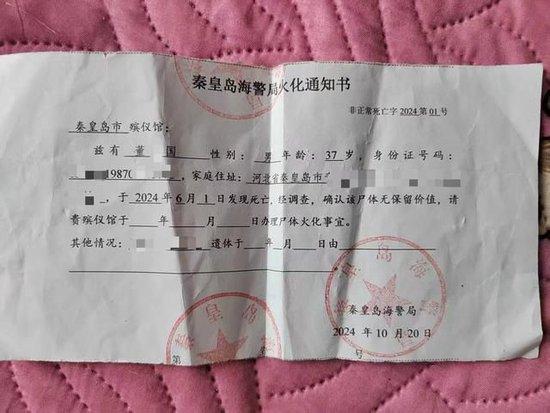 秦皇岛海警局火化通知书
非正常死亡字 2024 第 01 号
秦皇岛市 殡仪馆:
兹有 董 国 性别: 男 年龄: 37 岁, 身份证号码:
19870 , 家庭住址: 河北省秦皇岛市
, 于 2024 年 6 月 1 日发现死亡, 经调查, 确认该尸体无保留价值, 请
贵殡仪馆于 年 月 日办理尸体火化事宜。
其他情况: 遗体于 年 月 日由
秦皇岛海警局
2024 年 10 月 20 日
第 号